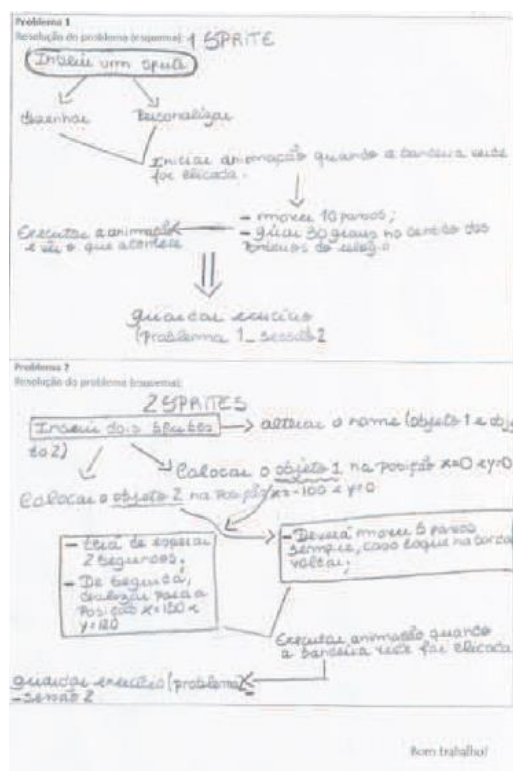 Problema 1
Resolução do problema (esquema): 1 SPRITE
Inserir um sprite
desenhar Personalizar
Iniciar animação quando a bandeira verde
for clicada.
- mover 10 passos;
Executar a animação - girar 30 graus no sentido dos
e ver o que acontece ponteiros do relógio
guardar exercício
(problema 1_sessão2
Problema 2
Resolução do problema (esquema):
2 SPRITES
Inserir dois sprites alterar o nome (objeto 1 e obje
to 2)
Colocar o objeto 1 na posição x=0 e y=0
Colocar o objeto 2 na posição x=-100 e y=0
- terá de esperar
2 segundos;
- De seguida,
deslizar para a
posição x=150 e
y=120
- Deverá mover 5 passos
sempre, caso toque na borda
voltar;
Executar animação quando
a bandeira verde for clicada
guardar exercício (problema
- sessão 2
Bom trabalho!